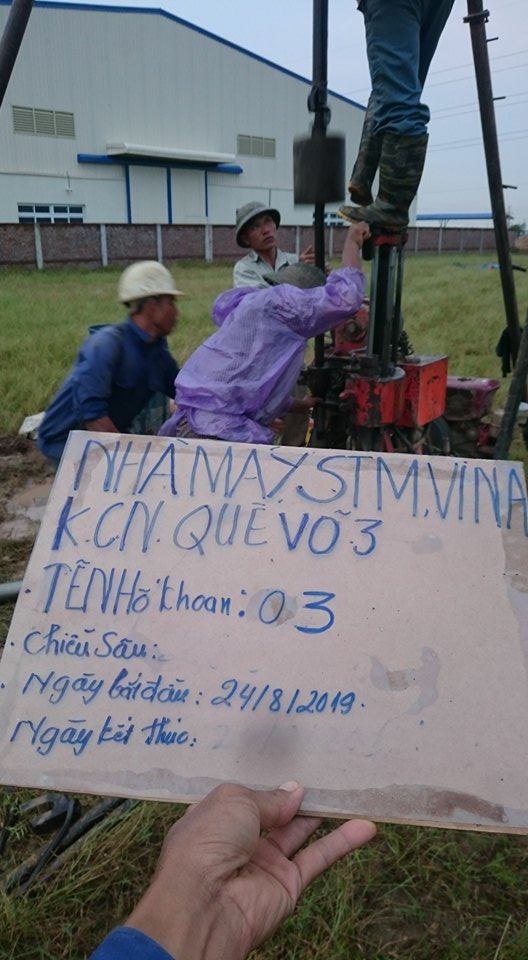 NHÀ MÁY STM, VINA
K.C.N. QUẾ VÕ 3
. TÊN Hố Khoan: 03
. Chiều Sâu:
. Ngày bắt đầu: 24/8/2019.
Ngày kết thúc: